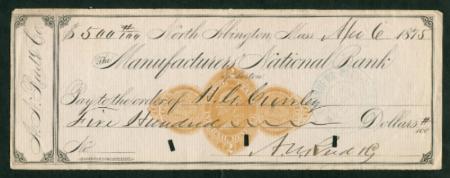 $500 #/100 North Abington, Mass Apr 6 1875
The Manufacturers National Bank
Boston
Pay to the order of H. G.
Five Hundred Dollars #/100
No